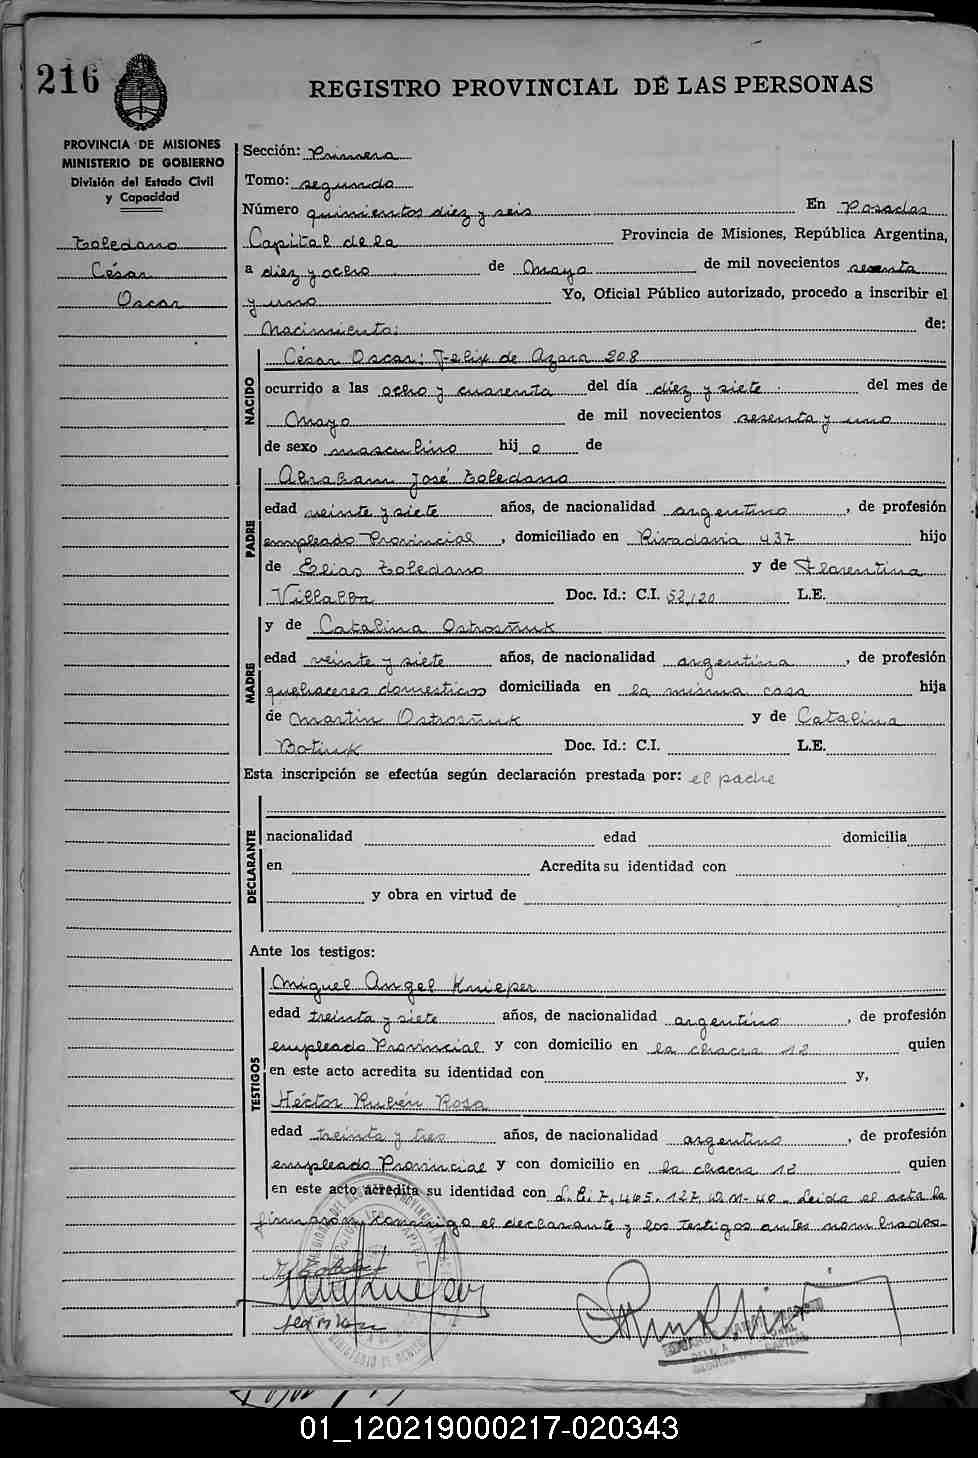 216
REGISTRO PROVINCIAL DE LAS PERSONAS
PROVINCIA DE MISIONES
MINISTERIO DE GOBIERNO
División del Estado Civil
y Capacidad
Toledano
César
Oscar
Sección: Primera
Tomo: segundo
Número quinientos diez y seis En Posadas
Capital de la Provincia de Misiones, República Argentina,
a diez y ocho de Mayo de mil novecientos sesenta
y uno Yo, Oficial Público autorizado, procedo a inscribir el
Nacimiento: de:
NACIDO
César Oscar; Felix de Azara 208
ocurrido a las ocho y cuarenta del día diez y siete del mes de
Mayo de mil novecientos sesenta y uno
de sexo masculino hij o de
PADRE
Abraham José Toledano
edad veinte y siete años, de nacionalidad argentino, de profesión
empleado Provincial, domiciliado en Rivadavia 437 hijo
de Elias Toledano y de Florentina
Villalba Doc. Id.: C.I. 52,120 L.E.
MADRE
y de Catalina Ostrosñuk
edad veinte y siete años, de nacionalidad argentina, de profesión
quehaceres domesticos domiciliada en la misma casa hija
de Martin Ostrosñuk y de Catalina
Botiuk Doc. Id.: C.I. L.E.
Esta inscripción se efectúa según declaración prestada por: el padre
DECLARANTE
nacionalidad edad domicilia
en Acredita su identidad con
y obra en virtud de
Ante los testigos:
TESTIGOS
Miguel Angel Knieper
edad treinta y siete años, de nacionalidad argentino, de profesión
empleado Provincial y con domicilio en la chacra 12 quien
en este acto acredita su identidad con y,
Héctor Rubén Rosa
edad treinta y tres años, de nacionalidad argentino, de profesión
empleado Provincial y con domicilio en la chacra 12 quien
en este acto acredita su identidad con L.E. 7,465.127, D.M-40. Leida el acta la
firmaron conmigo el declarante y los testigos antes nombrados.
01_120219000217-020343